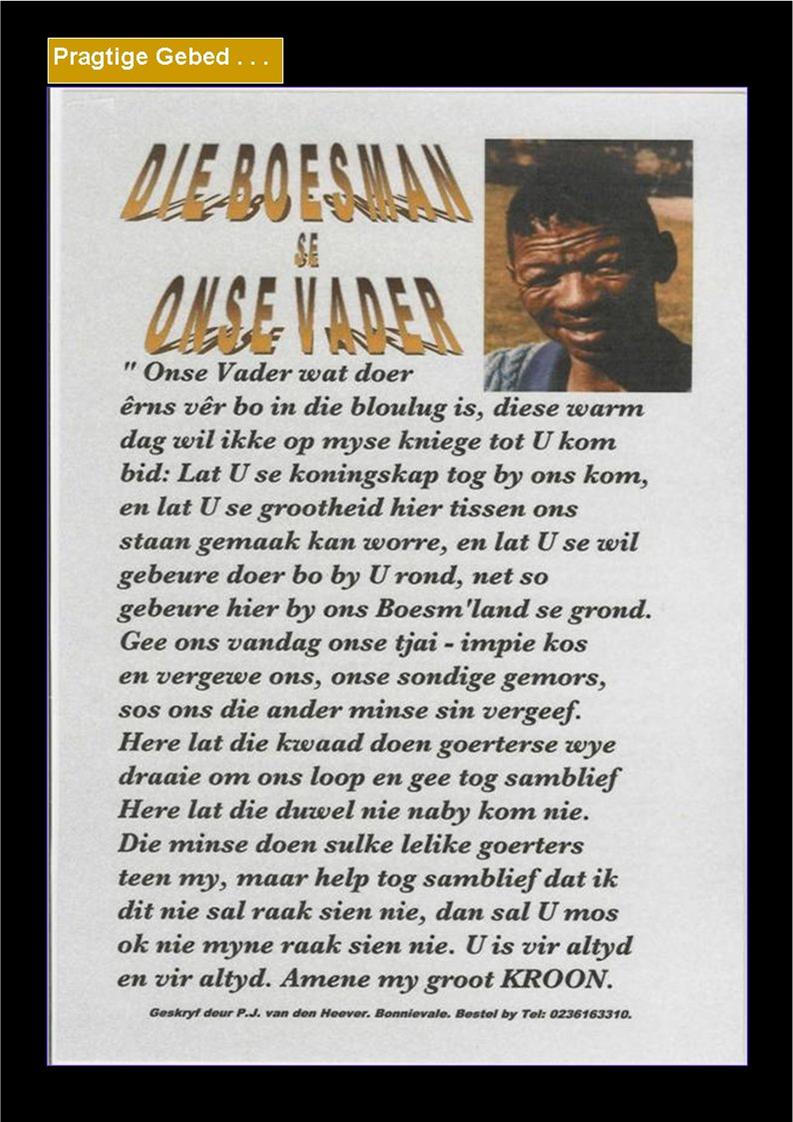 Pragtige Gebed . . .
DIE BOESMAN
SE
ONSE VADER
" Onse Vader wat doer
êrns vêr bo in die bloulug is, diese warm
dag wil ikke op myse kniege tot U kom
bid: Lat U se koningskap tog by ons kom,
en lat U se grootheid hier tissen ons
staan gemaak kan worre, en lat U se wil
gebeure doer bo by U rond, net so
gebeure hier by ons Boesm'land se grond.
Gee ons vandag onse tjai - impie kos
en vergewe ons, onse sondige gemors,
sos ons die ander minse sin vergeef.
Here lat die kwaad doen goerterse wye
draaie om ons loop en gee tog samblief
Here lat die duwel nie naby kom nie.
Die minse doen sulke lelike goerters
teen my, maar help tog samblief dat ik
dit nie sal raak sien nie, dan sal U mos
ok nie myne raak sien nie. U is vir altyd
en vir altyd. Amene my groot KROON.
Geskryf deur P.J. van den Heever. Bonnievale. Bestel by Tel: 0236163310.